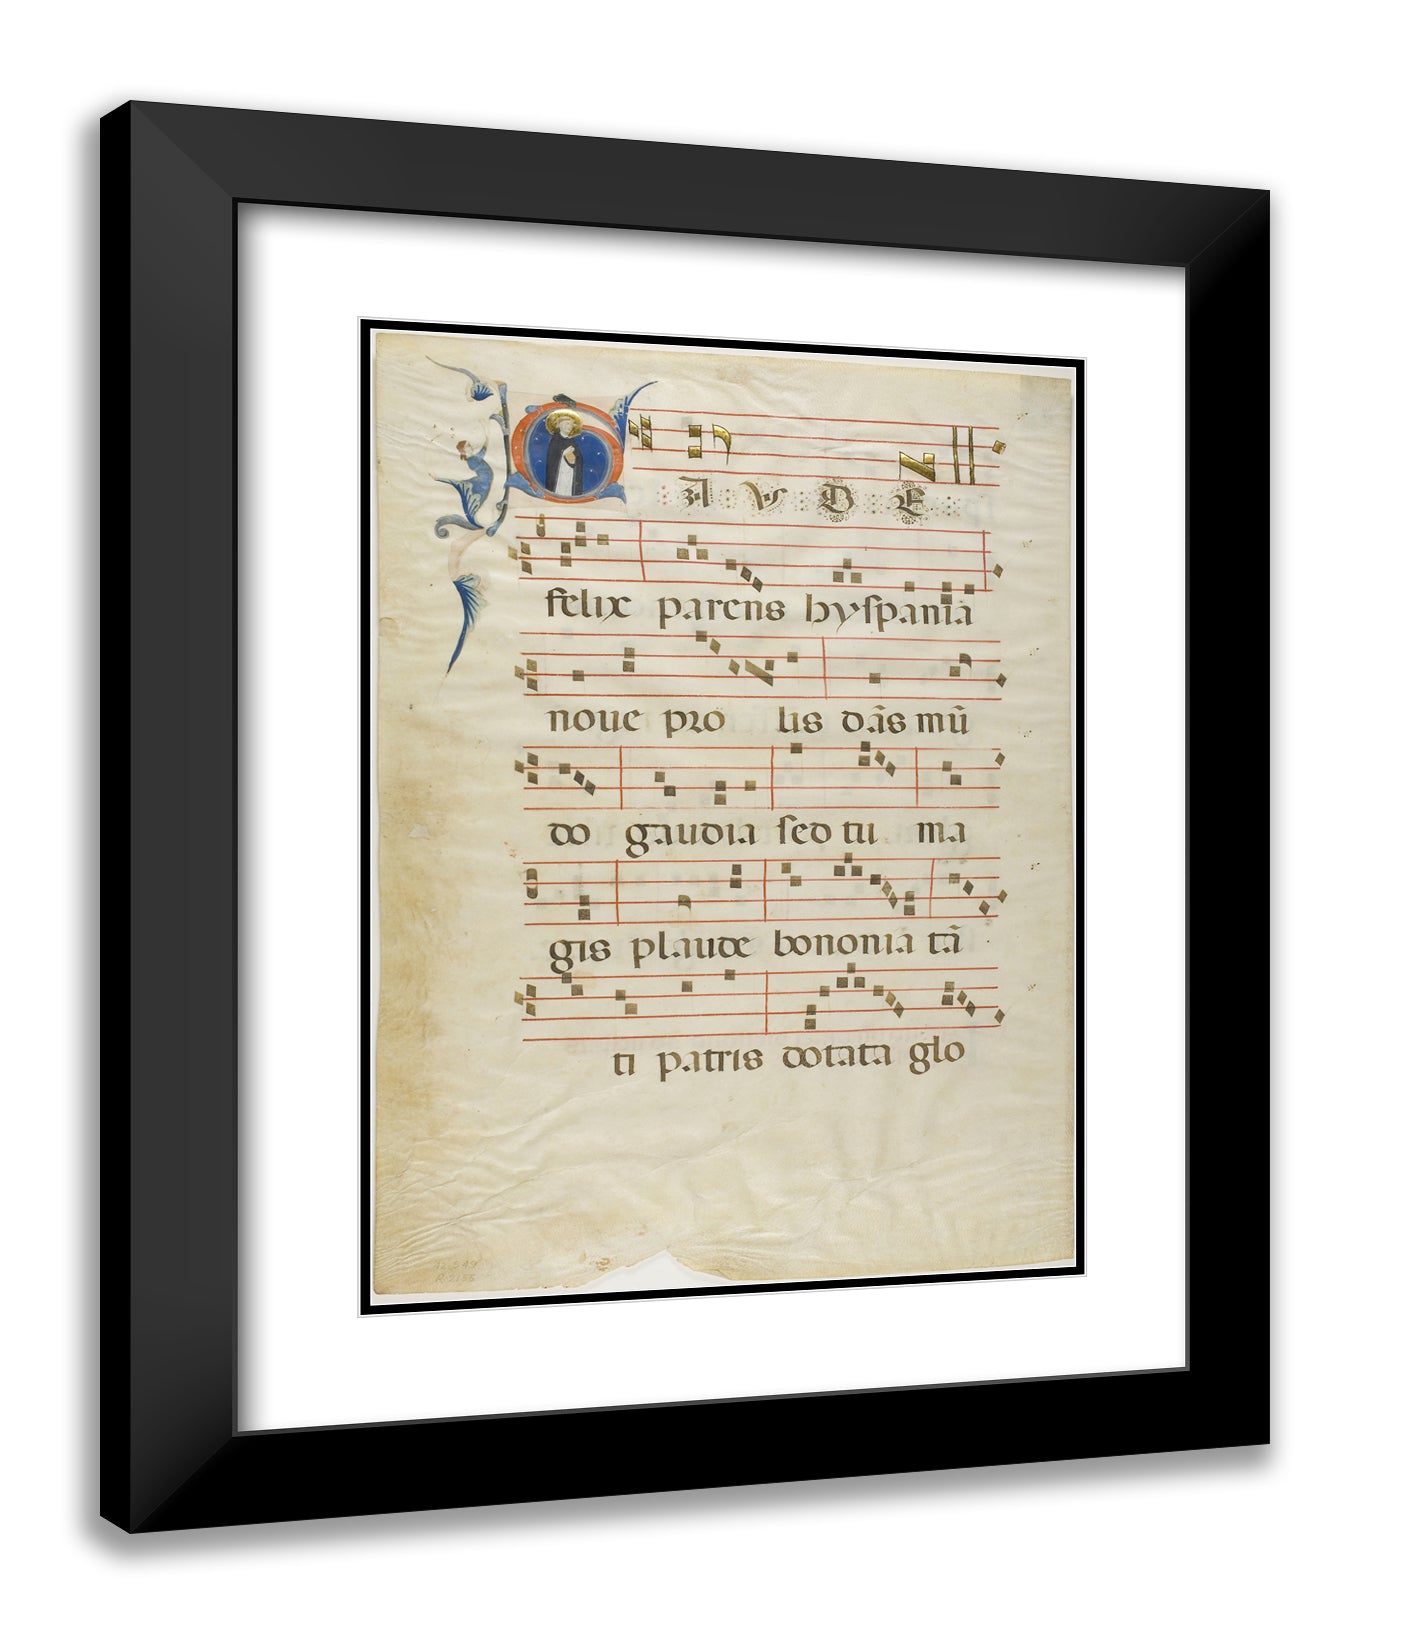 GAVDE
felix parens hyſpania
noue pro lis dãs mũ
do gaudia ſed tu ma
gis plaude bononia tã
ti patris dotata glo